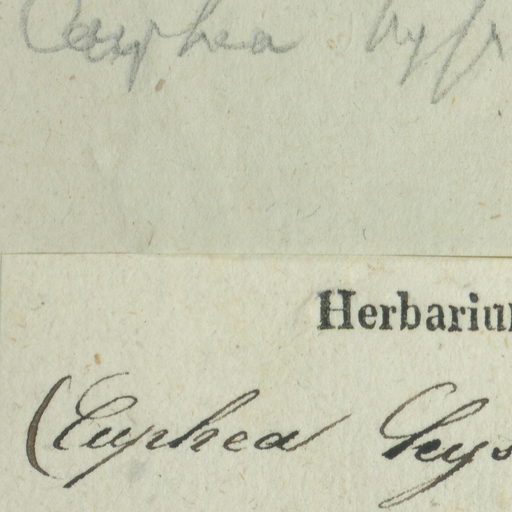 Cuphea hyss
Herbarium
Cuphea hys